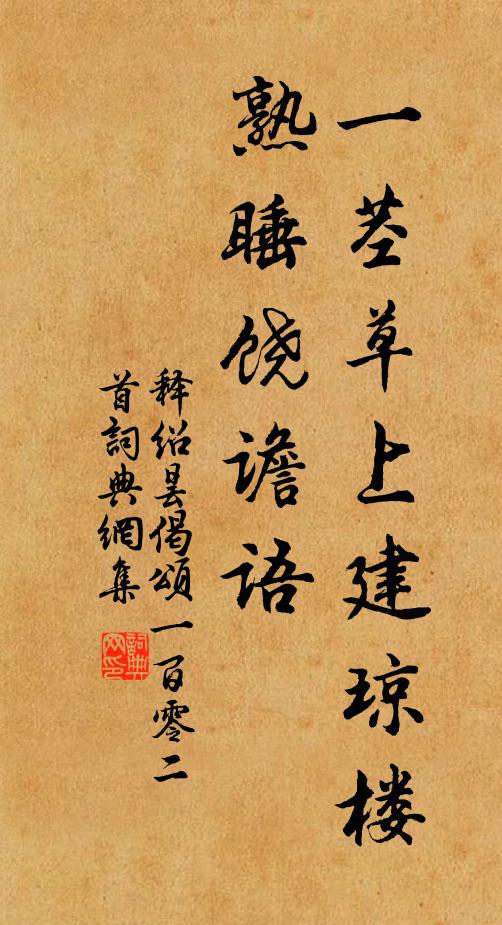 一茎草上建琼楼
熟睡饶谵语
释绍昙偈頌一百零二
首詞典網集
詞典
网印